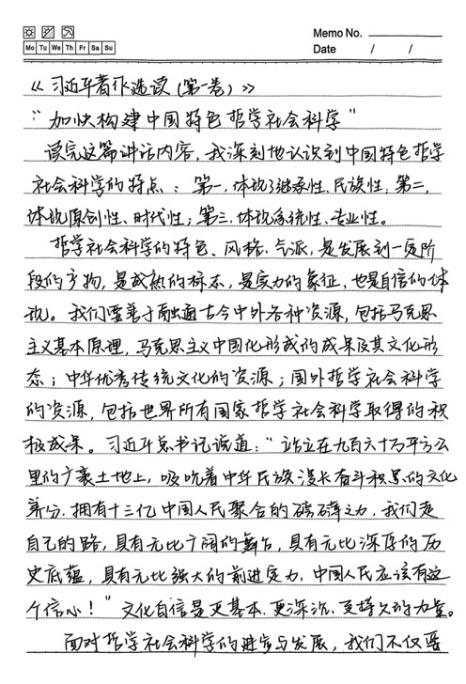 Memo No.
Mo Tu We Th Fr Sa Su
Date / /
《习近平著作选读（第一卷）》
“加快构建中国特色哲学社会科学”
读完这篇讲话内容，我深刻地认识到中国特色哲学
社会科学的特点：第一，体现继承性、民族性，第二，
体现原创性、时代性；第三，体现系统性、专业性。
哲学社会科学的特色、风格、气派，是发展到一定阶
段的产物，是成熟的标志，是实力的象征，也是自信的体
现。我们要善于融通古今中外各种资源，包括马克思
主义基本原理，马克思主义中国化形成的成果及其文化形
态；中华优秀传统文化的资源；国外哲学社会科学
的资源，包括世界所有国家哲学社会科学取得的积
极成果。习近平总书记强道：“站立在九百六十万平方公
里的广袤土地上，吸吮着中华民族漫长奋斗积累的文化
养分，拥有十三亿中国人民聚合的磅礴之力，我们走
自己的路，具有无比广阔的舞台，具有无比深厚的历
史底蕴，具有无比强大的前进定力，中国人民应该有这
个信心！”文化自信是更基本、更深沉、更持久的力量。
面对哲学社会科学的进步与发展，我们不仅要